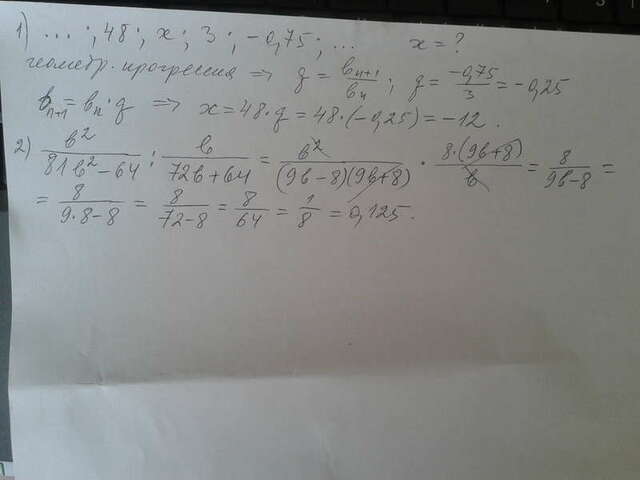 1) ... ; 48 ; x ; 3 ; -0,75 ; ... x = ?
геометр. прогрессия => q = bₙ₊₁/bₙ ; q = -0,75/3 = -0,25
bₙ₊₁ = bₙ · q => x = 48 · q = 48 · (-0,25) = -12 .
2) b²/(81b² - 64) : b/(72b + 64) = b²/((9b-8)(9b+8)) · 8·(9b+8)/b = 8/(9b-8) =
= 8/(9·8-8) = 8/(72-8) = 8/64 = 1/8 = 0,125 .